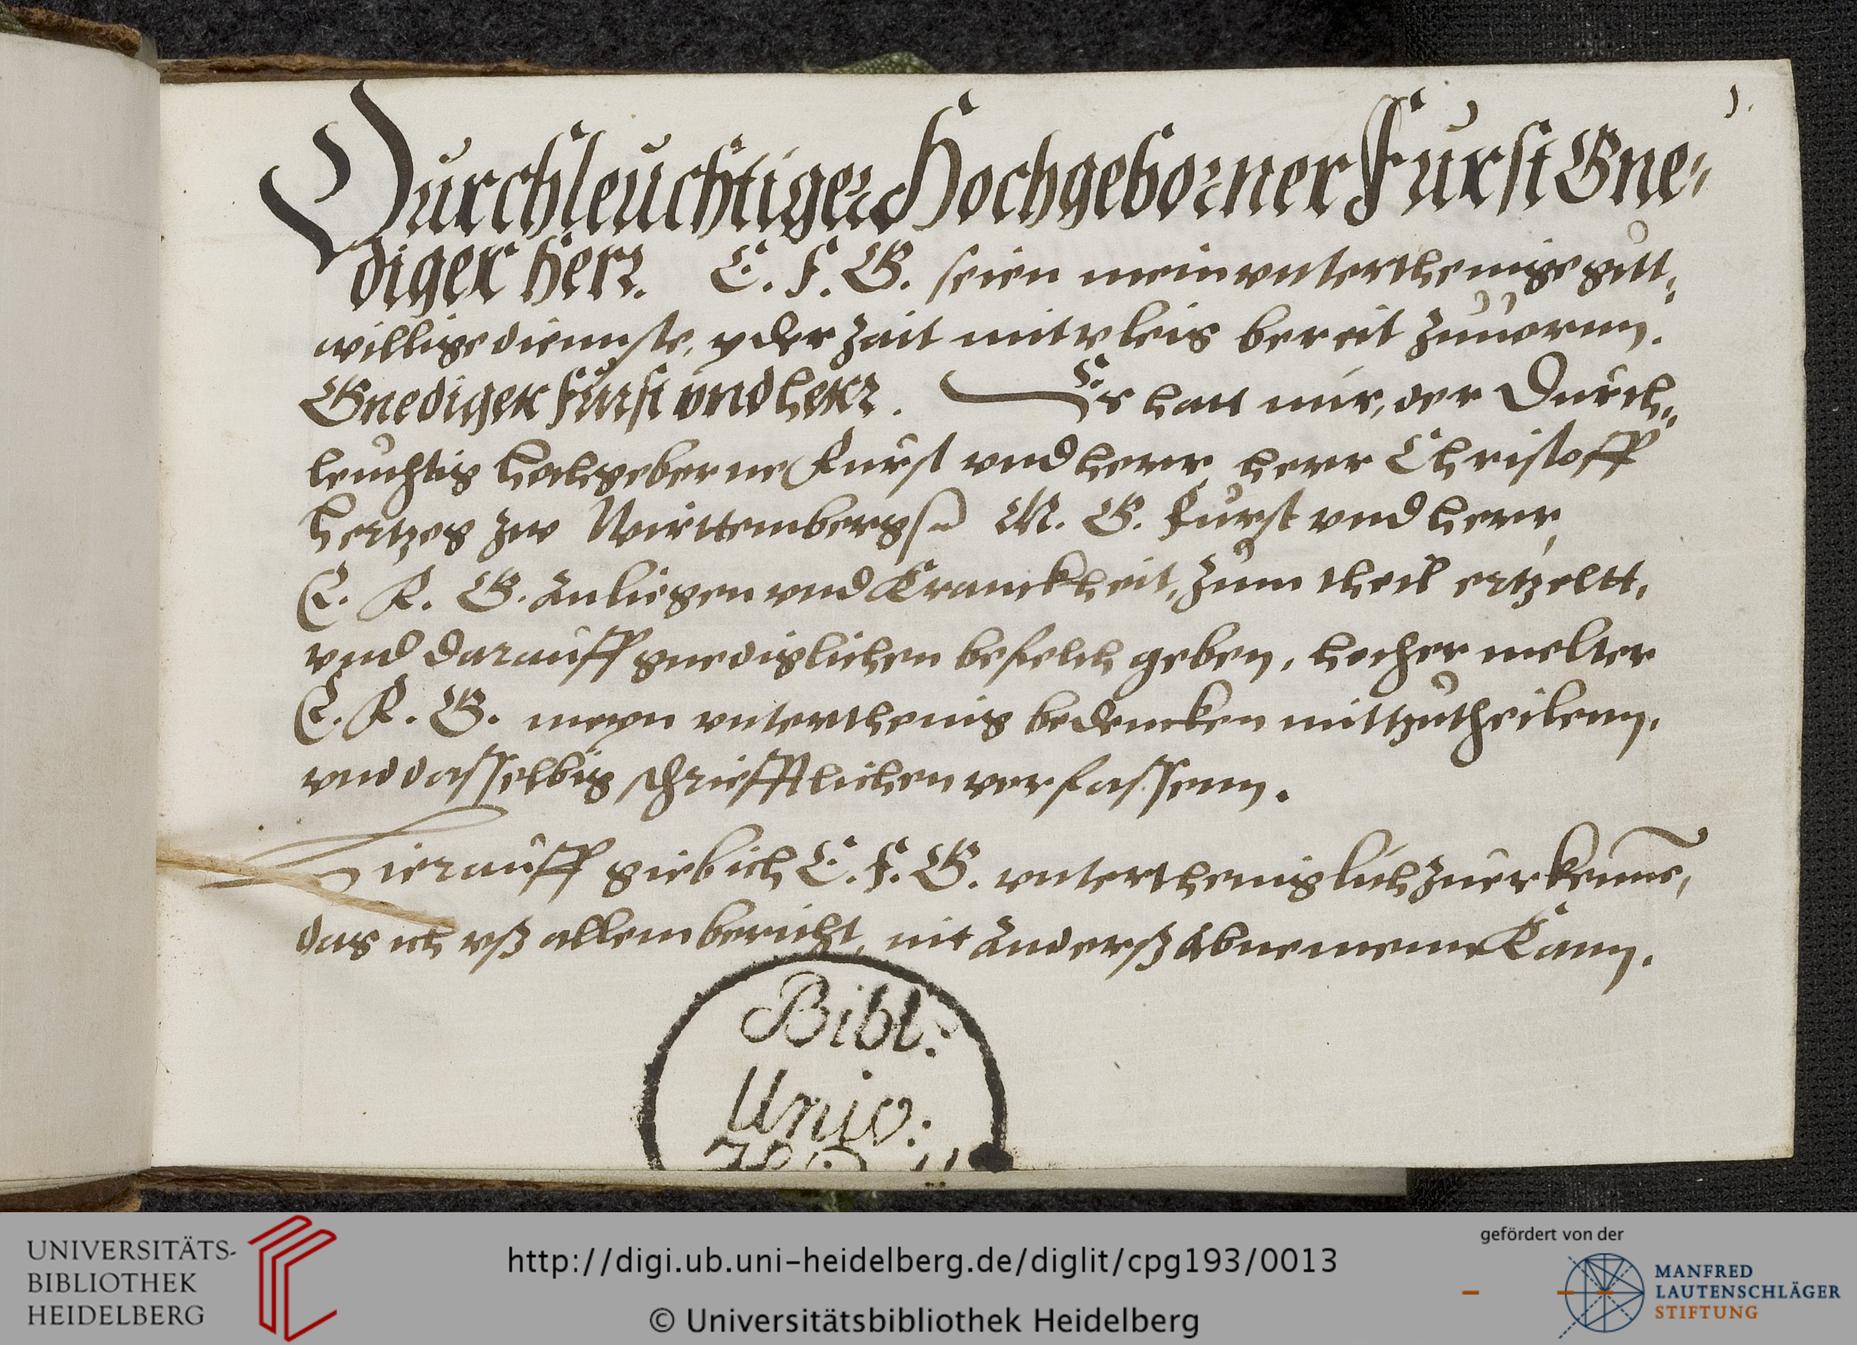 1.
Durchleuchtiger Hochgeborner Furst Gne-
diger herr. E. F. G. seien mein vnterthenige gůtt-
willige diennste, yder Zait mit vleis bereit Zuuornn.
Gnediger Fürst vnd herr. Es hatt mir, der Dürch-
leuchtig hochgeborne Fürst vnd herr, herr Christoff
hertzog zw Württemberg M. G. Fürst vnd herr,
E. F. G. änligen vnd Kranckheit, Zum theil ertzeltt,
vnd darauff gnediglichen befelch geben, hocher melter
E. F. G. meyn vnterthenig bedencken mittzůtheilenn,
vnd dasselbig schriefftlichen verfassenn.
Hierauff gieb ich E. F. G. vntertheniglich Zuerkenne,
das ich vß allem bericht, nit änderß abnemenn Kann.
Bibl:
Univ:
UNIVERSITÄTS-
BIBLIOTHEK
HEIDELBERG
http://digi.ub.uni-heidelberg.de/diglit/cpg193/0013
© Universitätsbibliothek Heidelberg
gefördert von der
MANFRED
LAUTENSCHLÄGER
STIFTUNG